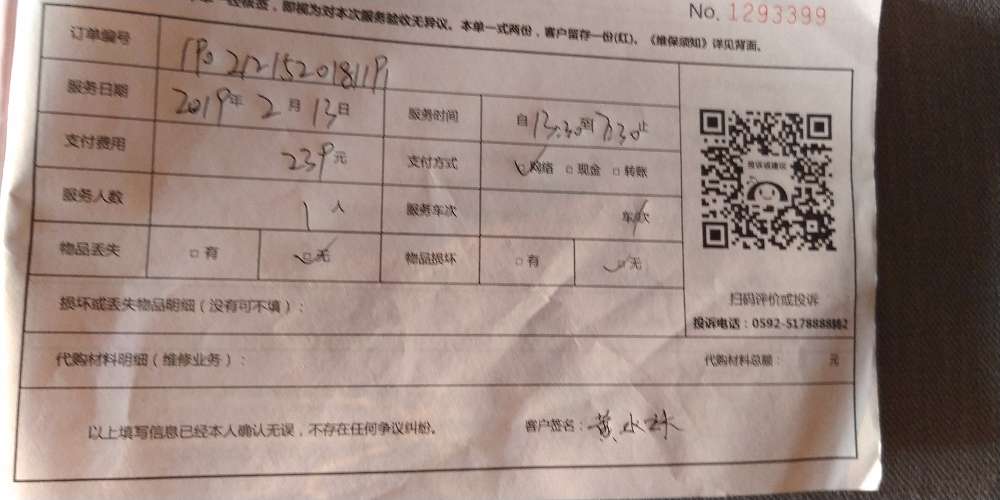 No. 1293399
签，即视为对本次服务验收无异议。本单一式两份，客户留存一份(红)。《维保须知》详见背面。
订单编号
服务日期 2019年 2月 13日 服务时间 自13:30到 止
支付费用 239元 支付方式 □网络 □现金 □转账
服务人数 1人 服务车次 车/次
物品丢失 □有 □无 物品损坏 □有 □无
投诉或建议
扫码评价或投诉
投诉电话：0592-5178888转2
损坏或丢失物品明细（没有可不填）：
代购材料明细（维修业务）： 代购材料总额： 元
以上填写信息已经本人确认无误，不存在任何争议纠纷。 客户签名：黄水林